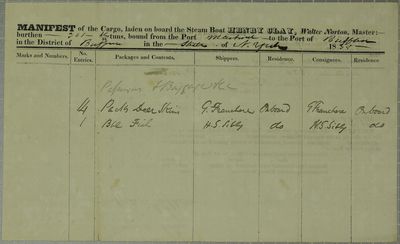 MANIFEST of the Cargo, laden on board the Steam Boat HENRY CLAY, Walter Norton, Master:—
burthen — 301 tuns, bound from the Port Mackinac to the Port of Buffalo
in the District of Buffalo in the State of N. York 183
Marks and Numbers. No. Entries. Packages and Contents. Shippers. Residence. Consignees. Residence
4 Packs Deer Skins G. Franchere Onboard G Franchere Onboard
1 Bbl Fish H.S. Sibly do H.S. Sibly do